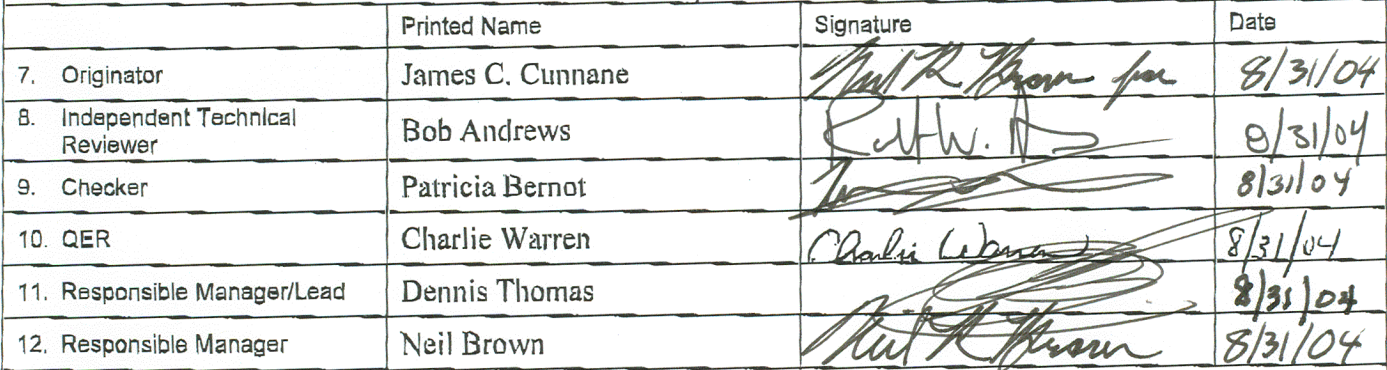 Printed Name Signature Date
7. Originator James C. Cunnane Neil R Brown for 8/31/04
8. Independent Technical
Reviewer Bob Andrews Robt W. 8/31/04
9. Checker Patricia Bernot 8/31/04
10. QER Charlie Warren Charlie Warren 8/31/04
11. Responsible Manager/Lead Dennis Thomas 8/31/04
12. Responsible Manager Neil Brown Neil R Brown 8/31/04